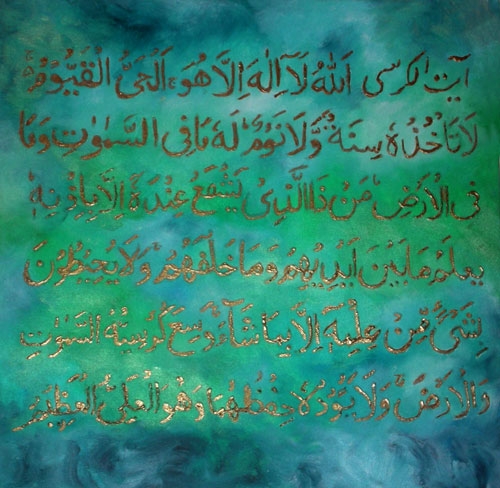 آیت الکرسی اَللهُ لَآ اِلٰهَ اِلَّا هُوَ اَلْحَیُّ الْقَیُّوْمُ
لَا تَاْخُذُهٗ سِنَةٌ وَّلَا نَوْمٌ لَهٗ مَا فِی السَّمٰوٰتِ وَمَا
فِی الْاَرْضِ مَنْ ذَا الَّذِیْ یَشْفَعُ عِنْدَهٗ اِلَّا بِاِذْنِهٖ
یَعْلَمُ مَا بَیْنَ اَیْدِیْهِمْ وَمَا خَلْفَهُمْ وَلَا یُحِیْطُوْنَ
بِشَیْءٍ مِّنْ عِلْمِهٖٓ اِلَّا بِمَا شَآءَ وَسِعَ کُرْسِیُّهُ السَّمٰوٰتِ
وَالْاَرْضَ وَلَا یَئُوْدُهٗ حِفْظُهُمَا وَهُوَ الْعَلِیُّ الْعَظِیْمُ